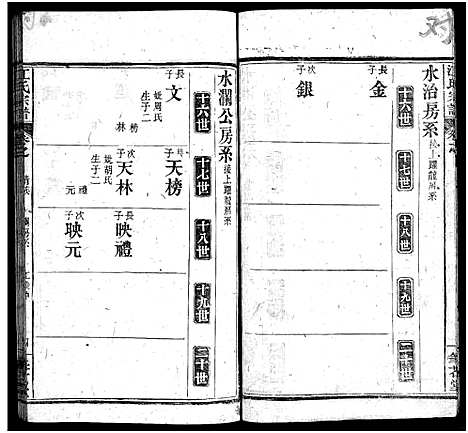 水治房系 接上躍龍房系
十六世 十七世 十八世 十九世 二十世
長子 金
次子 銀
水瀾公房系 接上躍龍房系
十六世 十七世 十八世 十九世 二十世
長子 文 娶周氏 生子二 榜 林
長子 天榜
次子 天林 娶胡氏 生子二 禮 元
長子 映禮
次子 映元
江氏宗譜